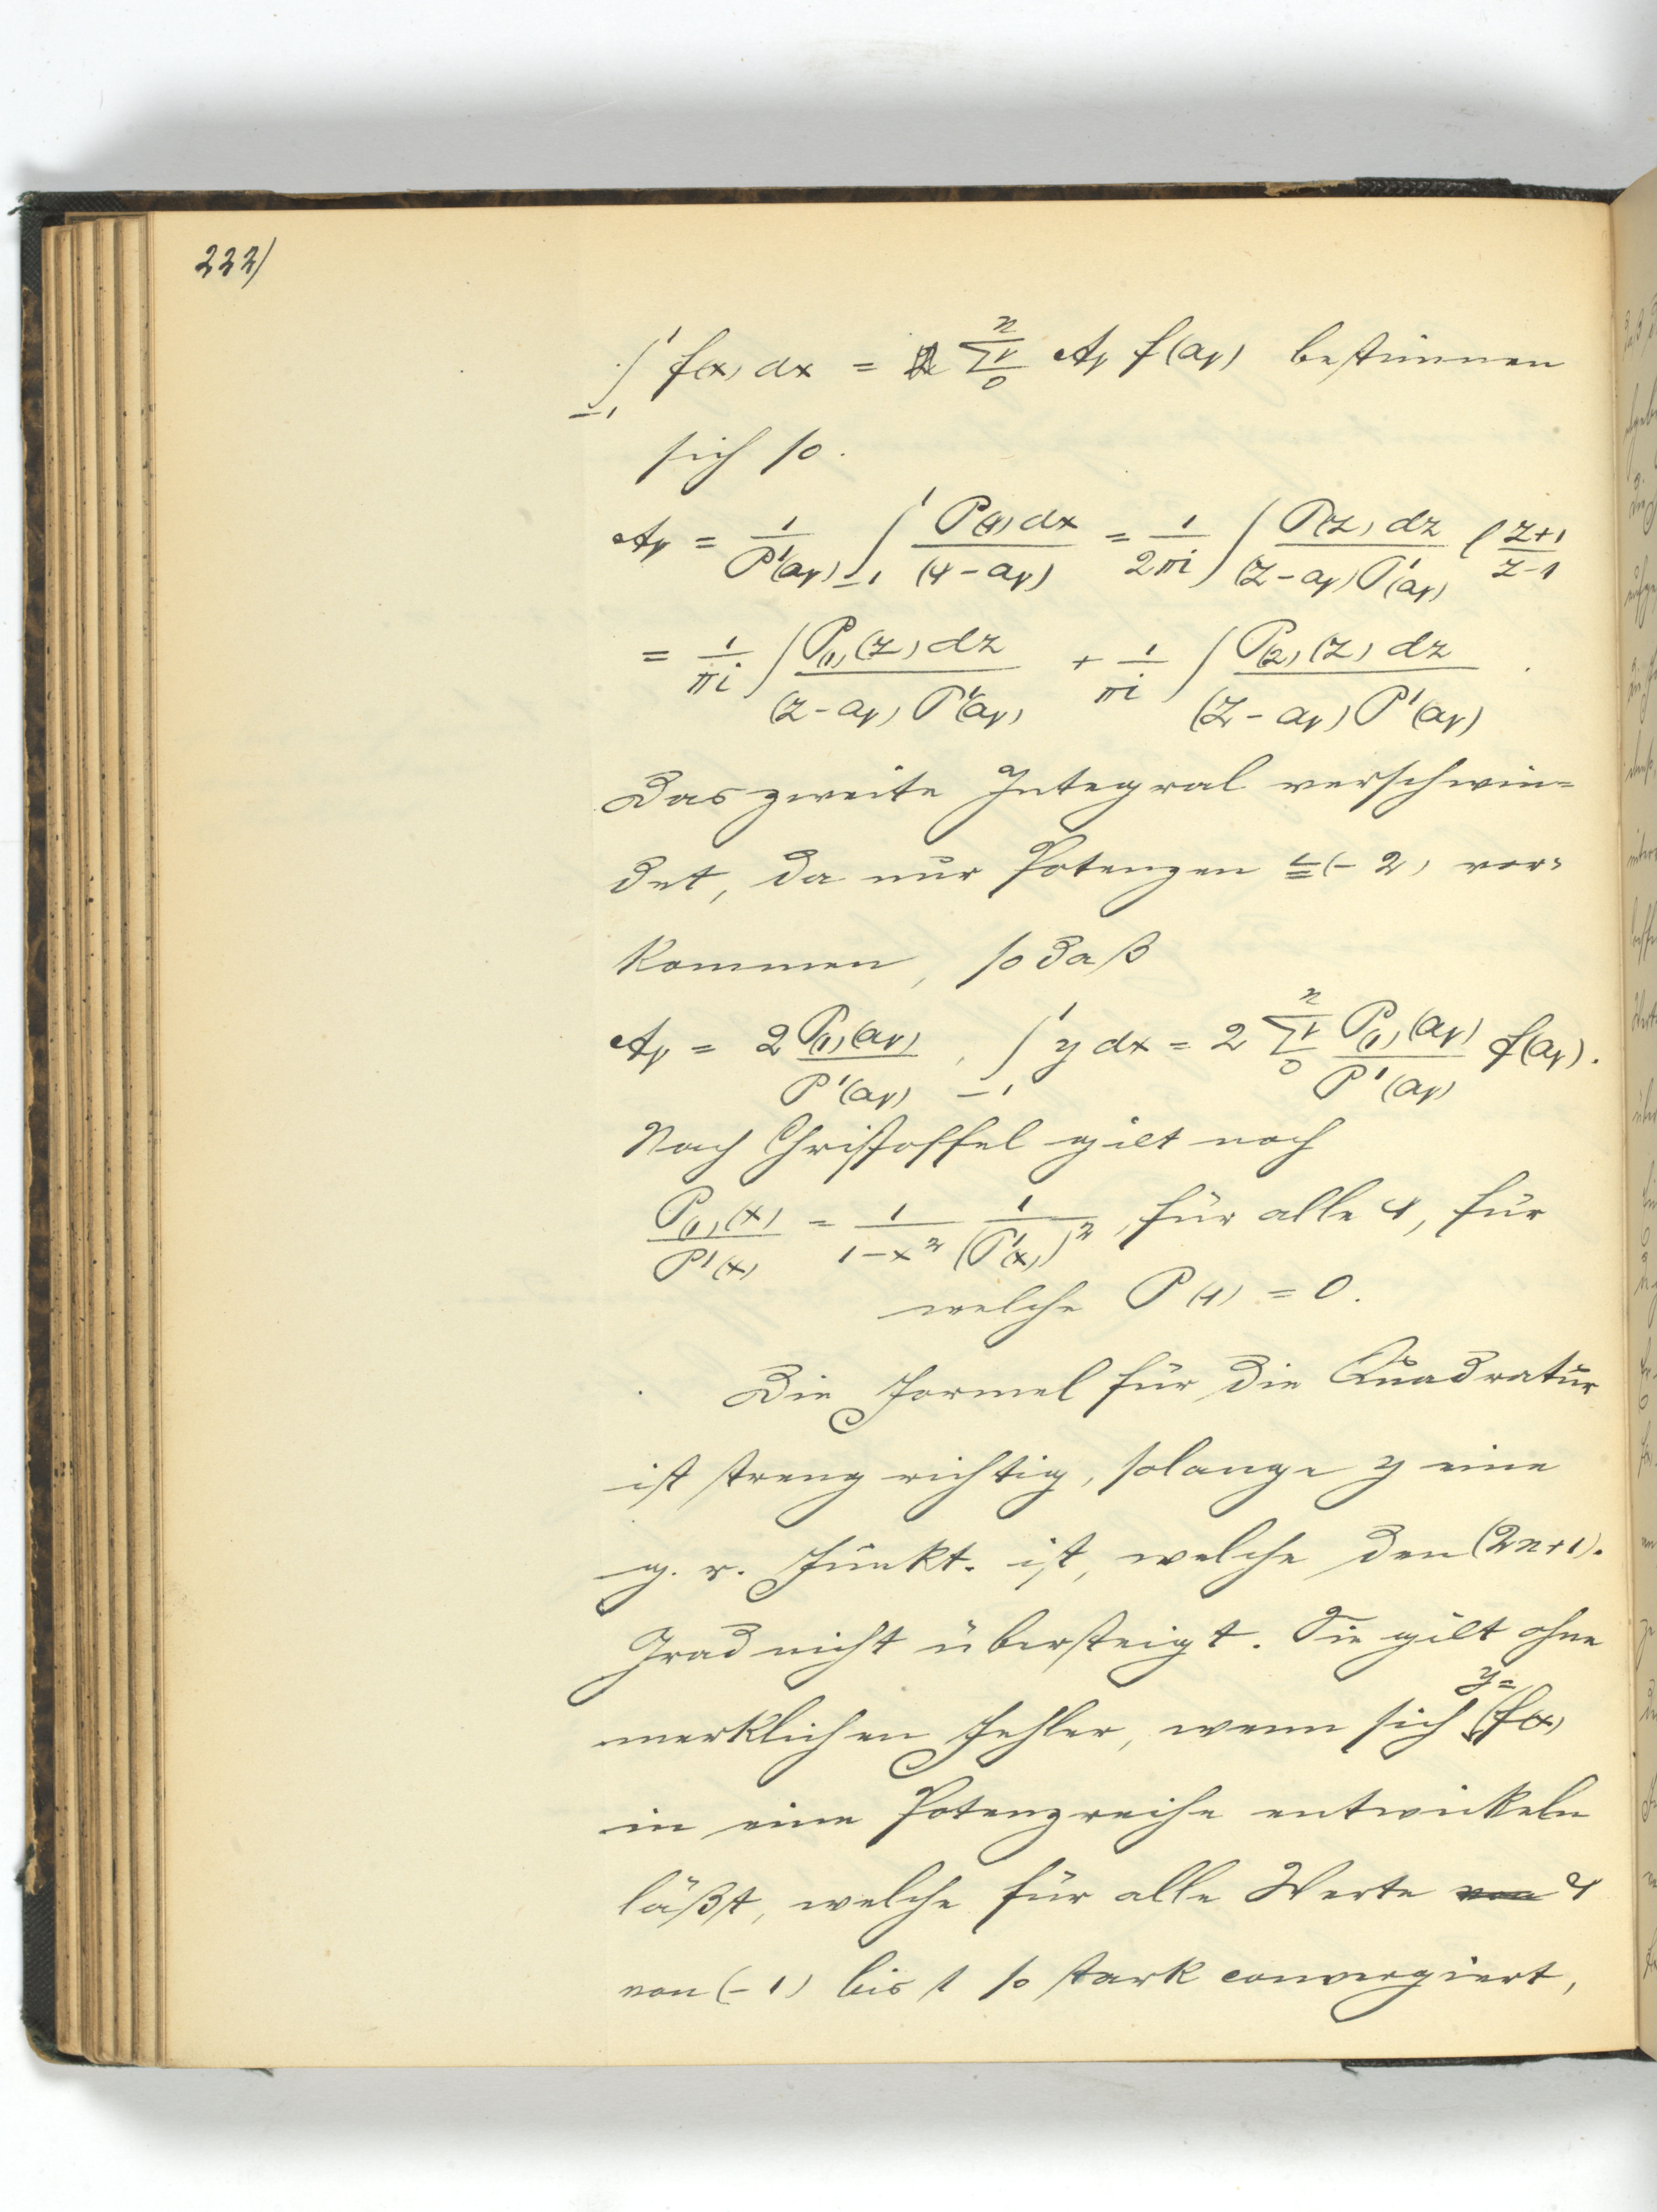 222)
∫_{-1}^{1} f(x) dx = Σ_{0}^{n}ν A_ν f(a_ν) bestimmen
sich so.
A_ν = 1/P'(a_ν) ∫_{-1}^{1} P(x) dx/(x - a_ν) = 1/2πi ∫ P(z) dz/((z - a_ν) P'(a_ν)) l (z+1)/(z-1)
= 1/πi ∫ P_{(1)}(z) dz/((z - a_ν) P'(a_ν)) + 1/πi ∫ P_{(2)}(z) dz/((z - a_ν) P'(a_ν)).
Das zweite Integral verschwin=
det, da nur Potenzen ≦ (-2) vor=
kommen, so daß
A_ν = 2 P_{(1)}(a_ν)/P'(a_ν), ∫_{-1}^{1} y dx = 2 Σ_{0}^{n}ν P_{(1)}(a_ν)/P'(a_ν) f(a_ν).
Nach Christoffel gilt noch
P_{(1)}(x)/P'(x) = 1/(1-x²) 1/(P'(x))², für alle x, für
welche P(x) = 0.
Die Formel für die Quadratur
ist streng richtig, solange y eine
g. r. Funkt. ist, welche den (2n+1).
Grad nicht übersteigt. Sie gilt ohne
merklichen Fehler, wenn sich y = f(x)
in eine Potenzreihe entwickeln
läßt, welche für alle Werte von x
von (-1) bis 1 so stark convergiert,